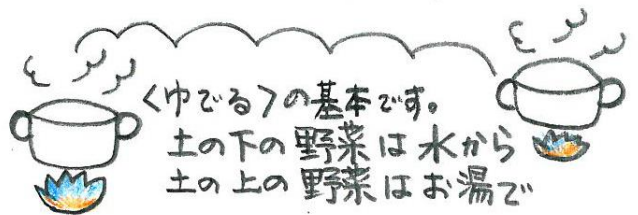 <ゆでる>の基本です。
土の下の野菜は水から
土の上の野菜はお湯で